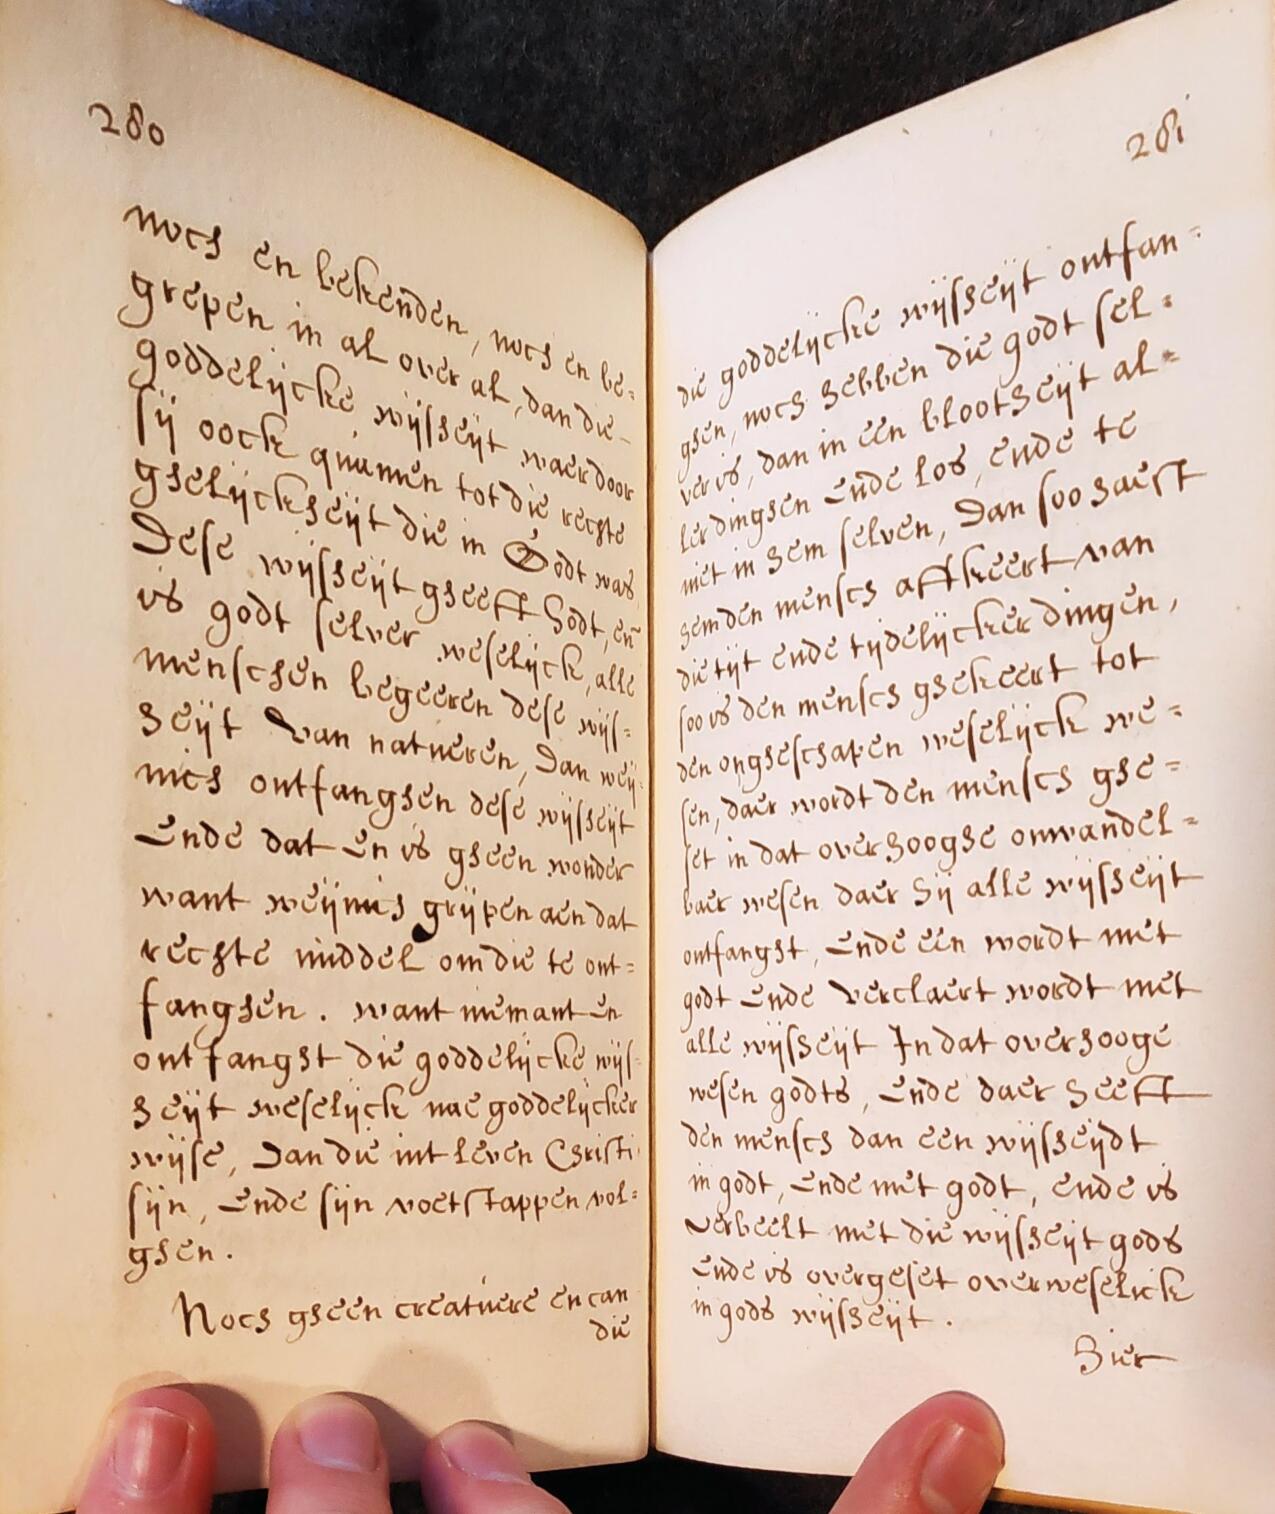 280
noch en bekenden, noch en be=
grepen in al over al, dan die
goddelijcke wijsheijt waer door
sij oock quamen tot die rechte
ghelijckheijt die in Godt was
Dese wijsheijt gheeft Godt, eñ
is godt selver weselijck, alle
menschen begeeren dese wijs=
heijt van natueren, Dan weij
nich ontfanghen dese wijsheijt
Ende dat en is gheen wonder
want weijnich grijpen aen dat
rechte middel om die te ont=
fanghen. want niemant en
ontfanght die goddelijcke wijs=
heijt weselijck nae goddelijcker
wijse, Dan die int leven Christi
sijn, Ende sijn voetstappen vol=
ghen.
Noch gheen creatuere en can
die
281
die goddelijcke wijsheijt ontfan=
ghen, noch hebben die godt sel=
ver is, dan in een blootheijt al=
ler dinghen Ende los, ende te
niet in hem selven, Dan soo haest
hem den mensch affkeert van
die tijt ende tijdelijcker dingen,
soo is den mensch ghekeert tot
den ongheschapen weselijck we=
sen, daer wordt den mensch ghe=
set in dat overhooghe onwandel=
baer wesen daer hij alle wijsheijt
ontfanght, Ende een wordt met
godt Ende verclaert wordt met
alle wijsheijt In dat overhooge
wesen godts, Ende daer heeft
den mensch dan een wijsheijdt
in godt, Ende met godt, ende is
verbeelt met die wijsheijt gods
Ende is overgeset overweselick
in gods wijsheijt.
Hier